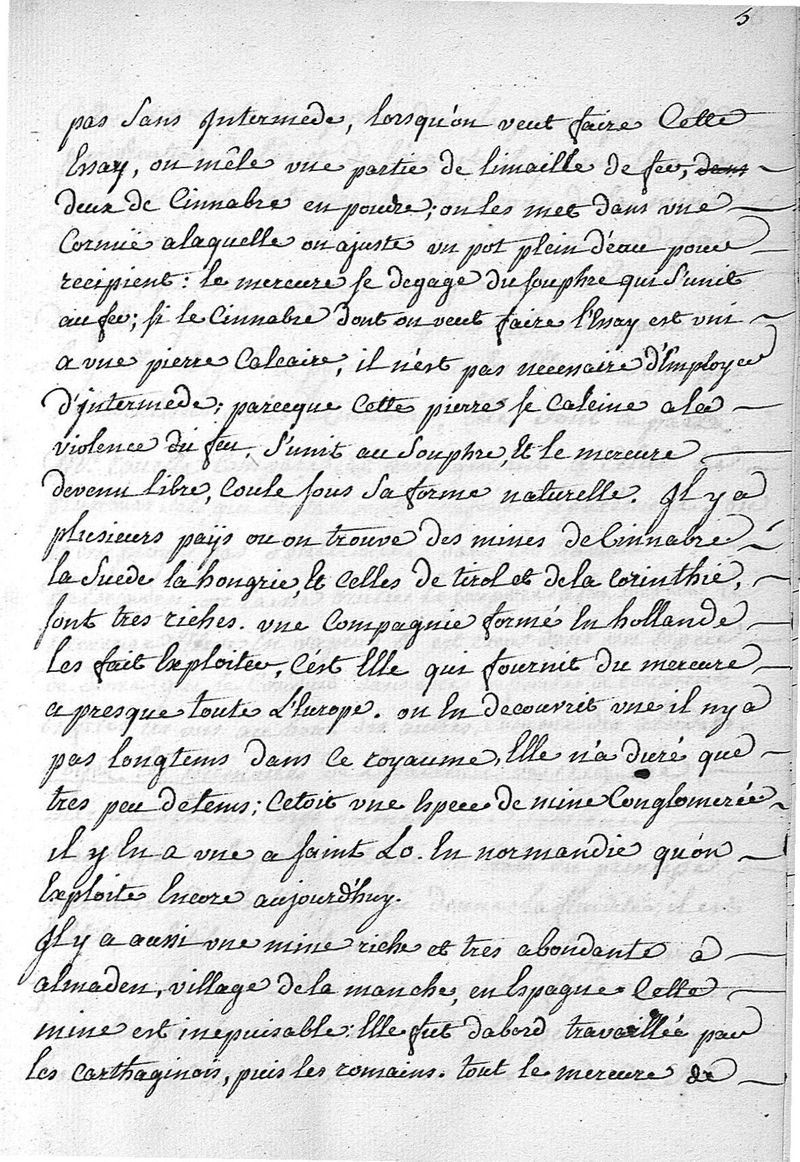 5
pas sans Intermede, lorsqu'on veut faire Cette
Essay, on mêle vne partie de limaille de fer, dans
deux de Cinnabre en poudre; on les met dans vne
Cornuë a laquelle on ajuste un pot plein d'eau pour
recipient: le mercure se degage du souphre qui s'unit
au fer; si le Cinnabre dont on veut faire l'Essay est vni
a vne pierre Calcaire, il n'est pas necessaire d'Employer
d'jntermede; parceque Cette pierre se Calcine a la
violence du feu, s'unit au souphre Et le mercure
devenu libre, Coule sous sa forme naturelle. Il y a
plusieurs païs ou on trouve des mines de Cinnabre
la Suede la hongrie, Et Celles de tirol et de la Corinthie,
sont tres riches. vne Compagnie formé En hollande
les fait Exploiter, C'est Elle qui fournit du mercure
a presque toute L'Europe. on En decouvrit vne il n'y a
pas longtems dans Ce royaume, Elle n'a duré que
tres peu de tems; C'etoit vne Espece de mine Conglomerée
il y En a vne a saint Lo. En normandie qu'on
Exploite Encore aujourd'huy.
Il y a aussi vne mine riche et tres abondante à
almaden, village de la manche, en Espagne Cette
mine est inepuisable: Elle fut d'abord travaillée par
les carthaginois, puis les romains. tout le mercure de